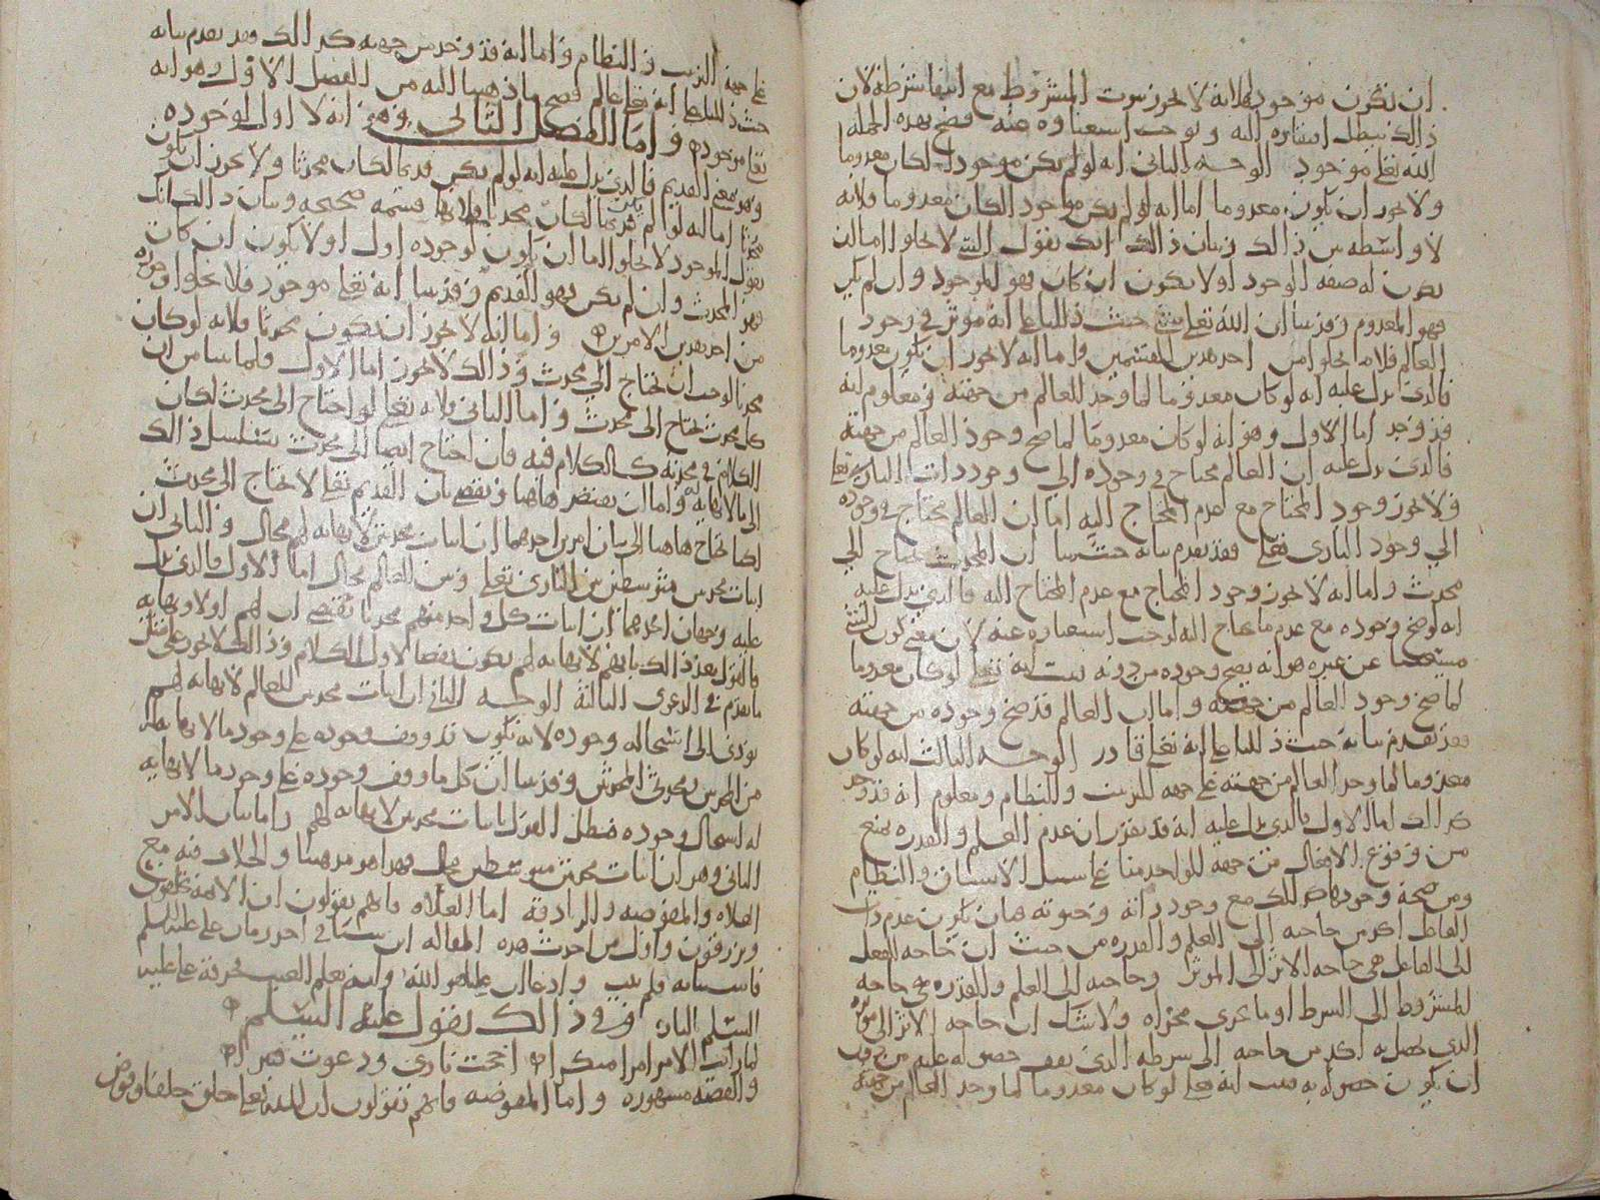 ان تكون موجودة فلانه لا يجوز ثبوت المشروط مع انتفا شرطه لان
ذالك يبطل افتقاره اليه ويوجب استغناوه عنه فصح بهذه الجملة
الله تعلى موجود الوجه الثاني انه لو لم يكن موجودا لكان معدوما
ولا يجوز ان يكون معدوما اما انه لو لم يكن موجود الكان معدوما فلانه
لا واسطه بين ذالك وبيان ذالك انك تقول الشي لا يخلوا اما ان
يكون له صفه الوجود اولا يكون ان كان فهو الموجود وان لم يكن
فهو المعدوم وقد بينا ان الله تعلى حيث دللنا على انه موثر في وجود
العالم فلا يخلوا من احد هذين القسمين واما انه لا يجوز ان يكون معدوما
فالذي يدل عليه انه لو كان معدوما لما وجد العالم من جهته ومعلوم انه
قد وجد اما الاول وهو انه لو كان معدوما لما صح وجود العالم من جهته
فالذي يدل عليه ان العالم محتاج في وجوده الى وجود ذات الباري تعلى
ولا يجوز وجود المحتاج مع عدم المحتاج اليه اما ان العالم محتاج في وجوده
الى وجود الباري تعلى فقد تقدم بيانه حيث بينا ان المحدث يحتاج الى
محدث واما انه لا يجوز وجود المحتاج مع عدم المحتاج اليه فالذي يدل عليه
انه لو صح وجوده مع عدم ما يحتاج اليه لوجب استغناوه عنه لان معنى كون الشي
مستغنيا عن غيره هو انه يصح وجوده من دونه ثبت انه تعلى لو كان معدوما
لما صح وجود العالم من جهته واما ان العالم قد صح وجوده من جهته
فقد تقدم بيانه حيث دللنا على انه تعلى قادر الوجه الثالث انه لو كان
معدوما لما وجد العالم من جهته على جهه الترتيب والنظام ومعلوم انه قد وجد
كذالك اما الاول فالذي يدل عليه انه قد تقرر ان عدم العلم والقدره يمنع
من وقوع الافعال من جهة الواحد منا على سبيل الاتساق والنظام
ومن صحة وجودها كذالك مع وجود ذاته وحيوته فبان يكون عدم ذات
الفاعل اكد من حاجته الى العلم والقدره من حيث ان حاجه الفعل
الى الفاعل هي حاجه الاثر الى الموثر وحاجته الى العلم والقدره هي حاجه
المشروط الى الشرط او ما يجري مجراه ولا شك ان حاجه الاثر الى موثره
الذي يحصل به اكد من حاجه الى شرطه الذي يقف حصوله عليه من غير
ان يكون حصوله به فثبت انه تعلى لو كان معدوما لما وجد العالم من جهته
على جهة الترتيب والنظام واما انه قد وجد من جهته كذالك وقد تقدم بيانه
حيث دللنا على انه تعلى عالم فصح ما ذهبنا اليه من الفصل الاول وهو انه
تعلى موجود واما الفصل الثاني وهو انه لا اول لوجوده
وهو معنى القديم فالذي يدل عليه انه لو لم يكن قديما لكان محدثا ولا يجوز ان يكون
محدثا اما انه لو لم يكن قديما لكان محدثا فلانها قسمه صحيحه وبيان ذالك انك
تقول الموجود لا يخلوا اما ان يكون لوجوده اول اولا يكون ان كان
فهو المحدث وان لم يكن فهو القديم وقد بينا انه تعلى موجود فلا يخلوا وجوده
من احد هذين الامرين واما انه لا يجوز ان يكون محدثا فلانه لو كان
محدثا لوجب ان يحتاج الى محدث وذالك لا يجوز اما الاول فلما بينا من ان
كل محدث يحتاج الى محدث واما الثاني فلانه تعلى لو احتاج الى محدث لكان
الكلام في محدثه كالكلام فيه فان احتاج ايضا الى محدث يتسلسل ذالك
الى ما لا نهايه له واما ان يقتصر هاهنا ونقضي بان القديم تعلى لا يحتاج الى محدث
لكنا نحتاج هاهنا الى بيان امرين احدهما ان اثبات محدثين لا نهايه لهم محال والثاني ان
اثبات محدثين متوسطين بين الباري تعلى وبين العالم محال اما الاول فالذي يدل
عليه وجهان احدهما ان اثبات كل واحد منهم محدثا يقتضي ان لهم اولا ونهايه
فالقول بعد ذالك بانهم لا نهايه لهم يكون نقضا لاول الكلام وذالك لا يجوز على مثل
ما تقدم في الدعوى الثالثة الوجه الثاني ان اثبات محدثين للعالم لا نهايه لهم
يودي الى استحاله وجوده لانه يكون قد وقف وجوده على وجود ما لا نهايه له
من المحدثين ومحدثي المحدثين وقد بينا ان كل ما وقف وجوده على وجود ما لا نهايه
له استحال وجوده فبطل القول باثبات محدثين لا نهايه لهم واما بيان الامر
الثاني وهو ان اثبات محدثين متوسطين محال فهذا هو مذهبنا والخلاف فيه مع
الغلاه والمفوضه والزنادقه اما الغلاه فانهم يقولون ان الايمة يخلقون
ويرزقون واول من احدث هذه المقاله ابن سبا في احد زمان علي عليه السلم
فاستتابه فلم يتب وادعا ان عليا هو الله وانه يعلم الغيب فحرقه علي عليه
السلم بالنار وفي ذالك يقول عليه السلم
لما رايت الامر امرا منكرا اججت ناري ودعوت قنبرا
والقصه مشهوره واما المفوضه فانهم يقولون ان الله تعلى خلق خلقا وفوض